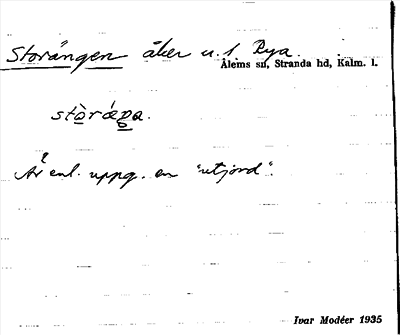 Storängen åker u. f Rya.
Ålems sn, Stranda hd, Kalm. l.
stòráŋa.
Är enl. uppg. en "utjord".
Ivar Modéer 1935